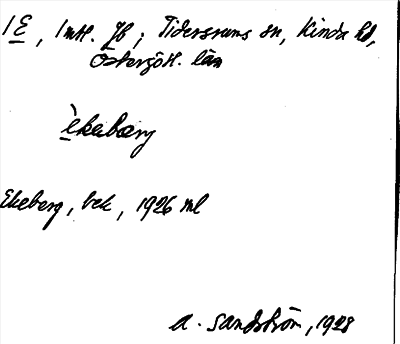 1 E, Inst. Jb; Tidersrums sn, Kinda hd,
Östergötl. län
èkebærg
Ekeberg, bek, 1926 ml
A. Sandström, 1928